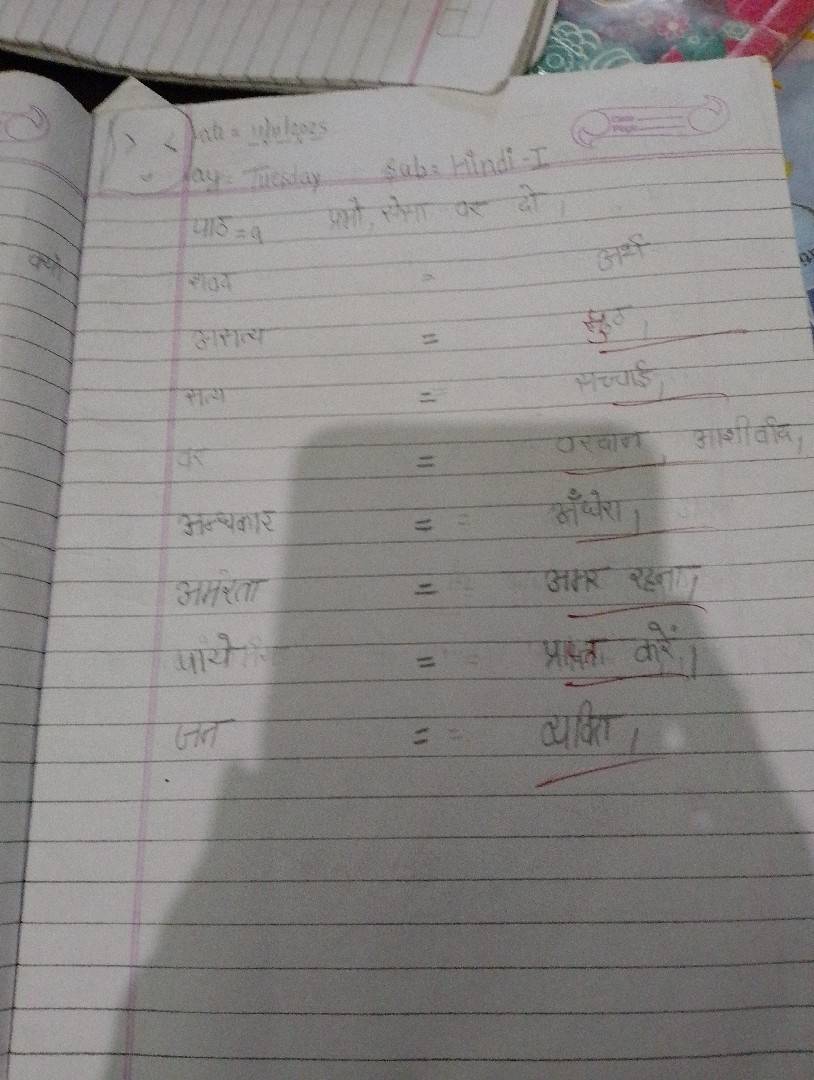 Day = Tuesday Sub = Hindi - I
पाठ = १ प्रभो, ऐसा वर दो।
शब्द = अर्थ
असत्य = झुठ।
सत्य = सच्चाई।
वर = वरदान, आशीर्वाद।
अन्धकार = अँधेरा।
अमरता = अमर रहना।
पायें = करें।
जन = व्यक्ति।